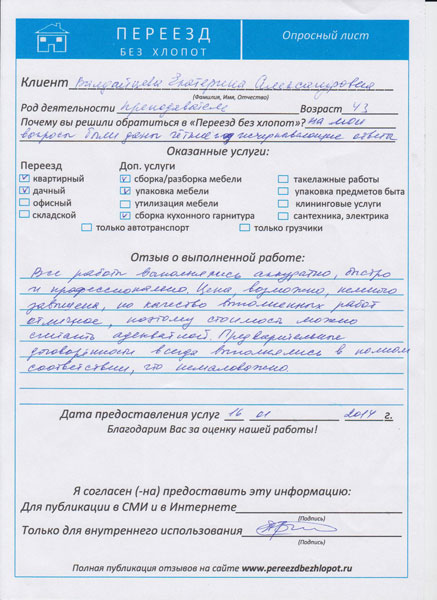 ПЕРЕЕЗД
БЕЗ ХЛОПОТ
Опросный лист
Клиент Валдайцева Екатерина Александровна
(Фамилия, Имя, Отчество)
Род деятельности преподаватель Возраст 43
Почему вы решили обратиться в «Переезд без хлопот»? на мои
вопросы были даны четкие исчерпывающие ответы
Оказанные услуги:
Переезд Доп. услуги
квартирный сборка/разборка мебели такелажные работы
дачный упаковка мебели упаковка предметов быта
офисный утилизация мебели клининговые услуги
складской сборка кухонного гарнитура сантехника, электрика
только автотранспорт только грузчики
Отзыв о выполненной работе:
Все работы выполнялись аккуратно, быстро
и профессионально. Цена, возможно, немного
завышена, но качество выполненных работ
отличное, поэтому стоимость можно
считать адекватной. Предварительные
договоренности всегда выполнялись в полном
соответствии, что немаловажно.
Дата предоставления услуг 16 01 2014 г.
Благодарим Вас за оценку нашей работы!
Я согласен (-на) предоставить эту информацию:
Для публикации в СМИ и в Интернете
(Подпись)
Только для внутреннего использования
(Подпись)
Полная публикация отзывов на сайте www.pereezdbezhlopot.ru